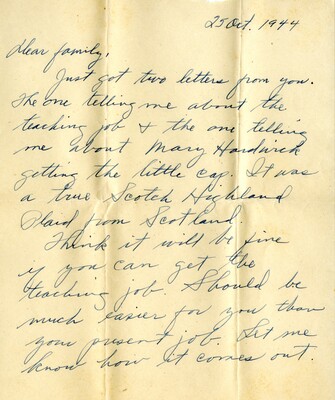 25 Oct. 1944
Dear family,
Just got two letters from you.
The one telling me about the
teaching job & the one telling
me about Mary Hardwick
getting the little cap. It was
a true Scotch Highland
Plaid from Scotland.
Think it will be fine
if you can get the
teaching job. Should be
much easier for you than
your present job. Let me
know how it comes out.